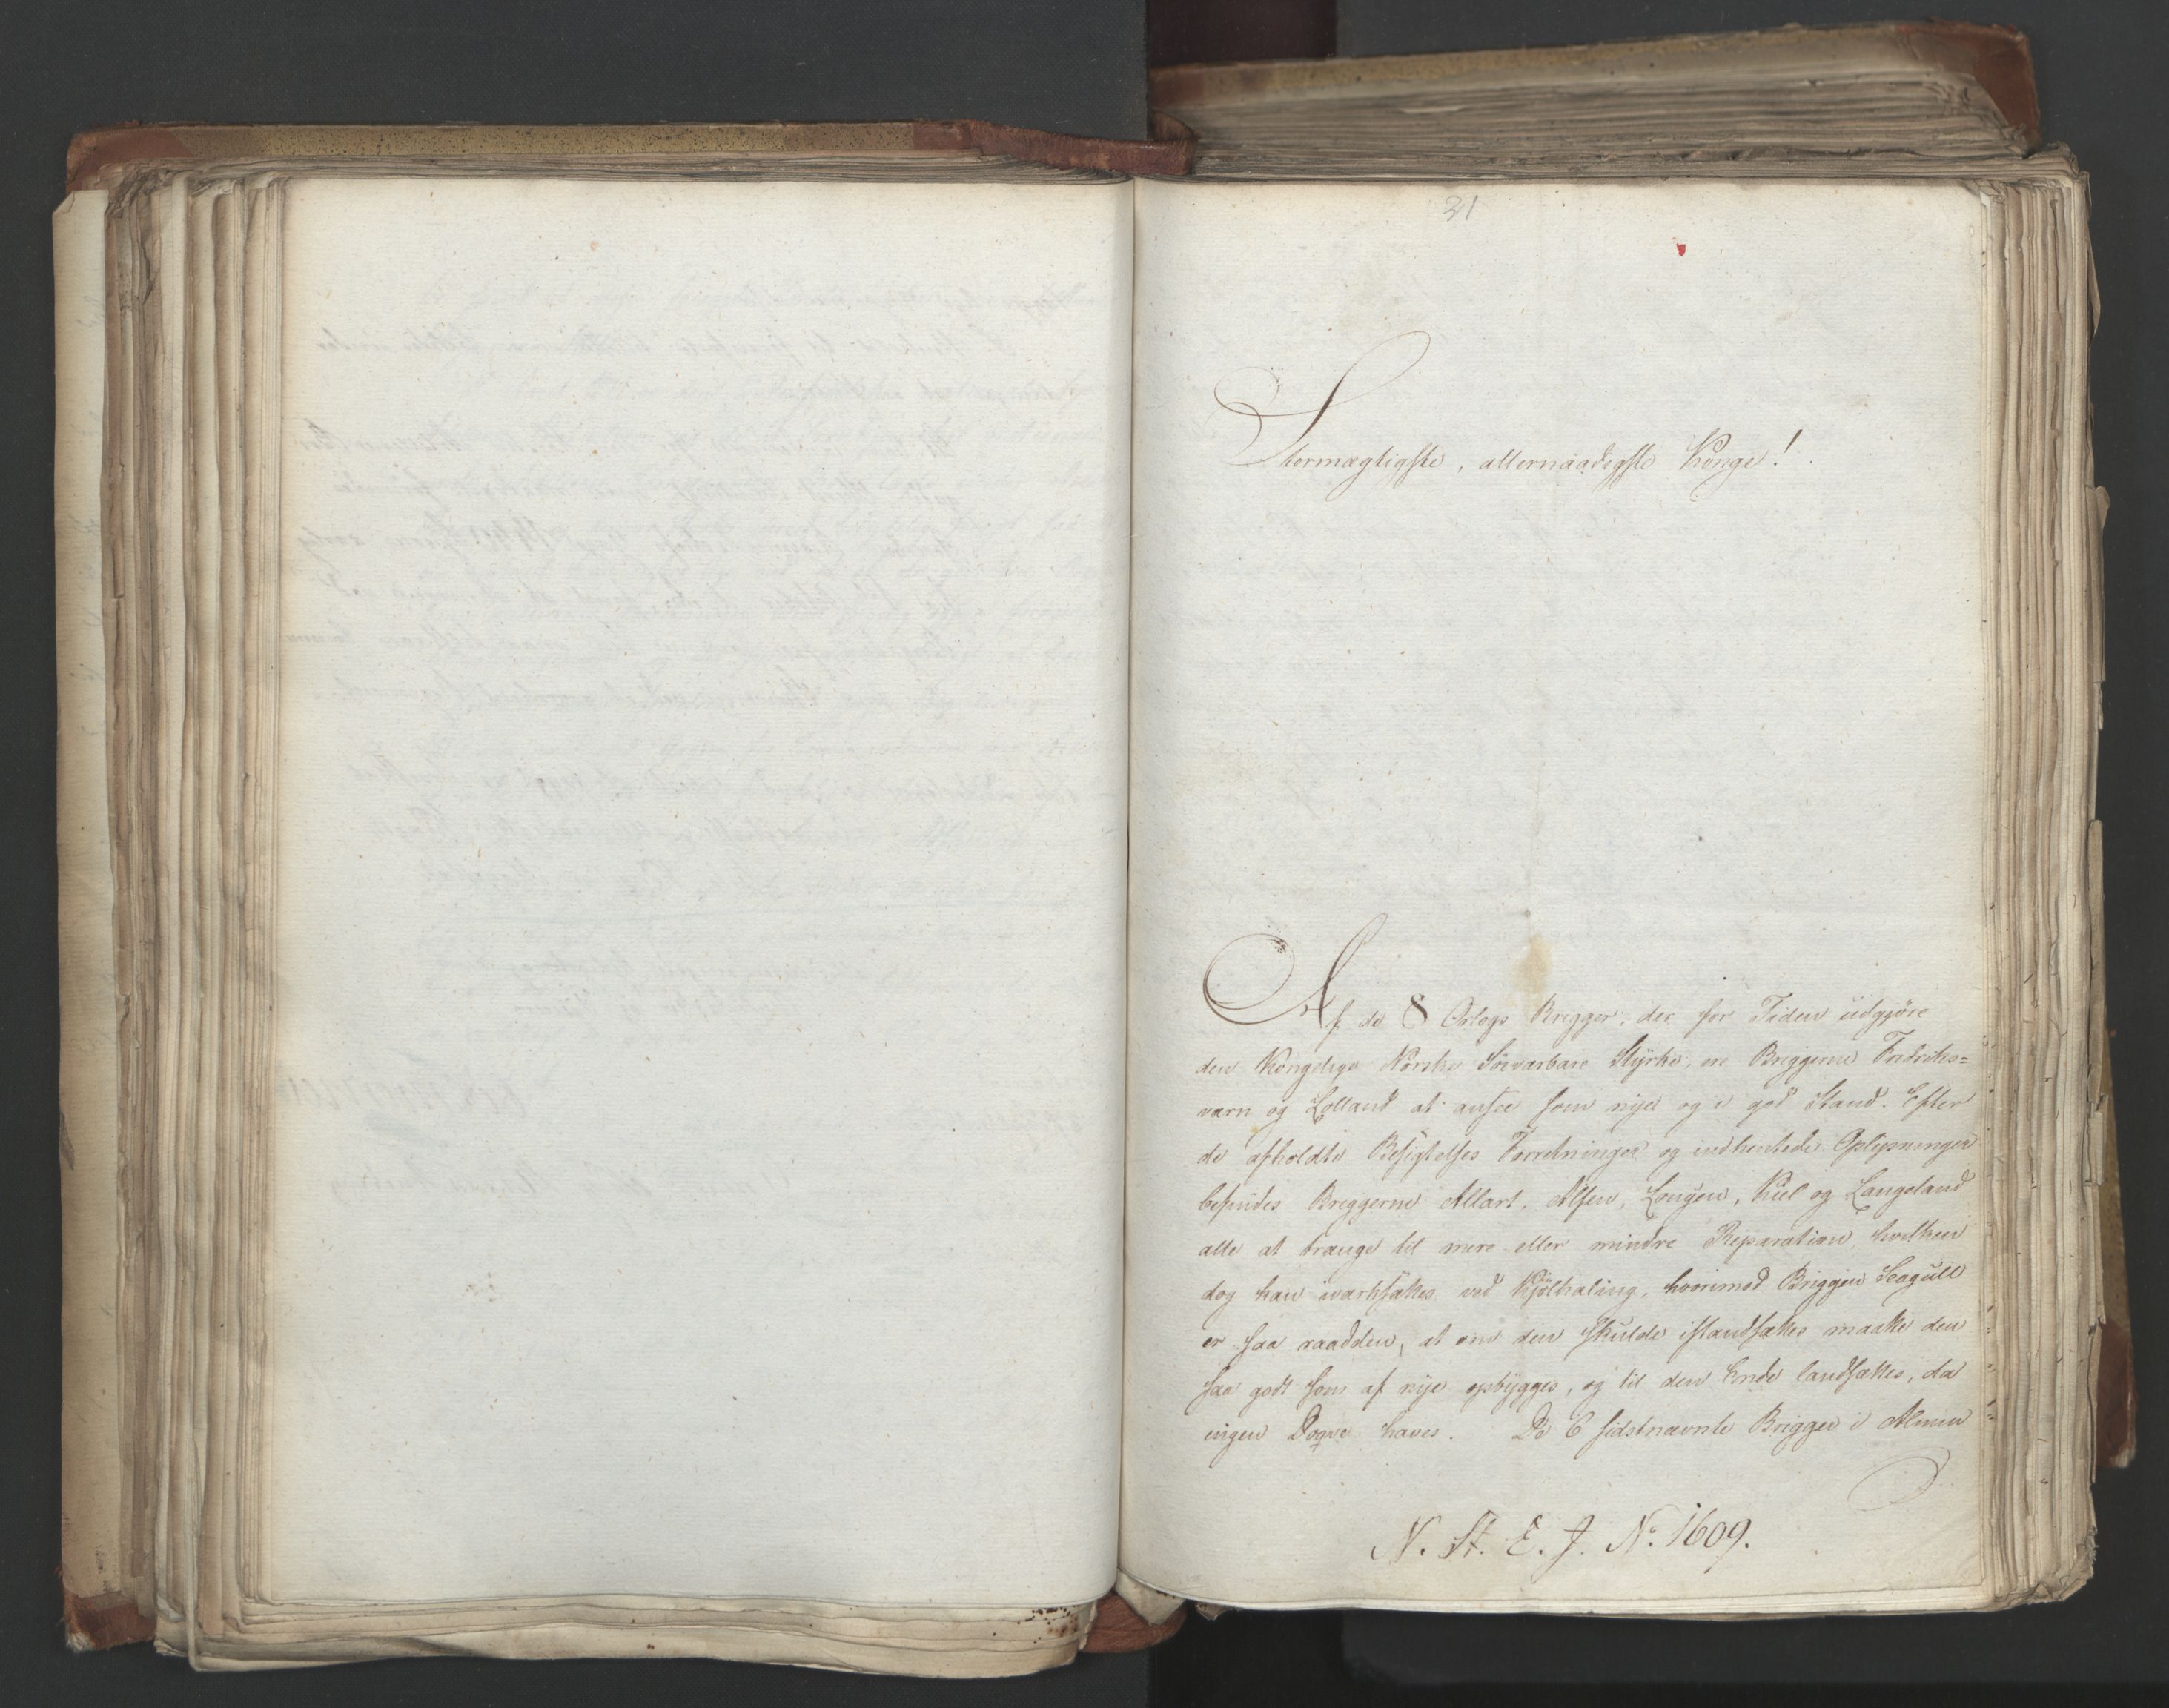 21
Stormægtigste, allernaadigste Konge!
Af de 8 Orlogs Brigger, der for Tiden üdgjøre
den Kongelige Norske Söevarbare Styrke, ere Briggerne Fredriks=
værn og Lolland at ansee som nye og i god Stand. Efter
de afholdte Besigtelses Forretninger og indhentede Oplysninger
befindes Briggerne Allart, Alsen, Lougen, Kiel og Langeland
alle at trænge til mere eller mindre Reparation, hvilken
dog kan iværksættes ved Kjölhaling, hvorimod Briggen Seagüll
er saa raadden, at om den skulde istandsættes maatte den
saa godt som af nye opbygges, og til den Ende landsættes, da
ingen Dogve haves. De 6 sidstnævnte Brigger i Almin
N. St. E. J. No. 1609.